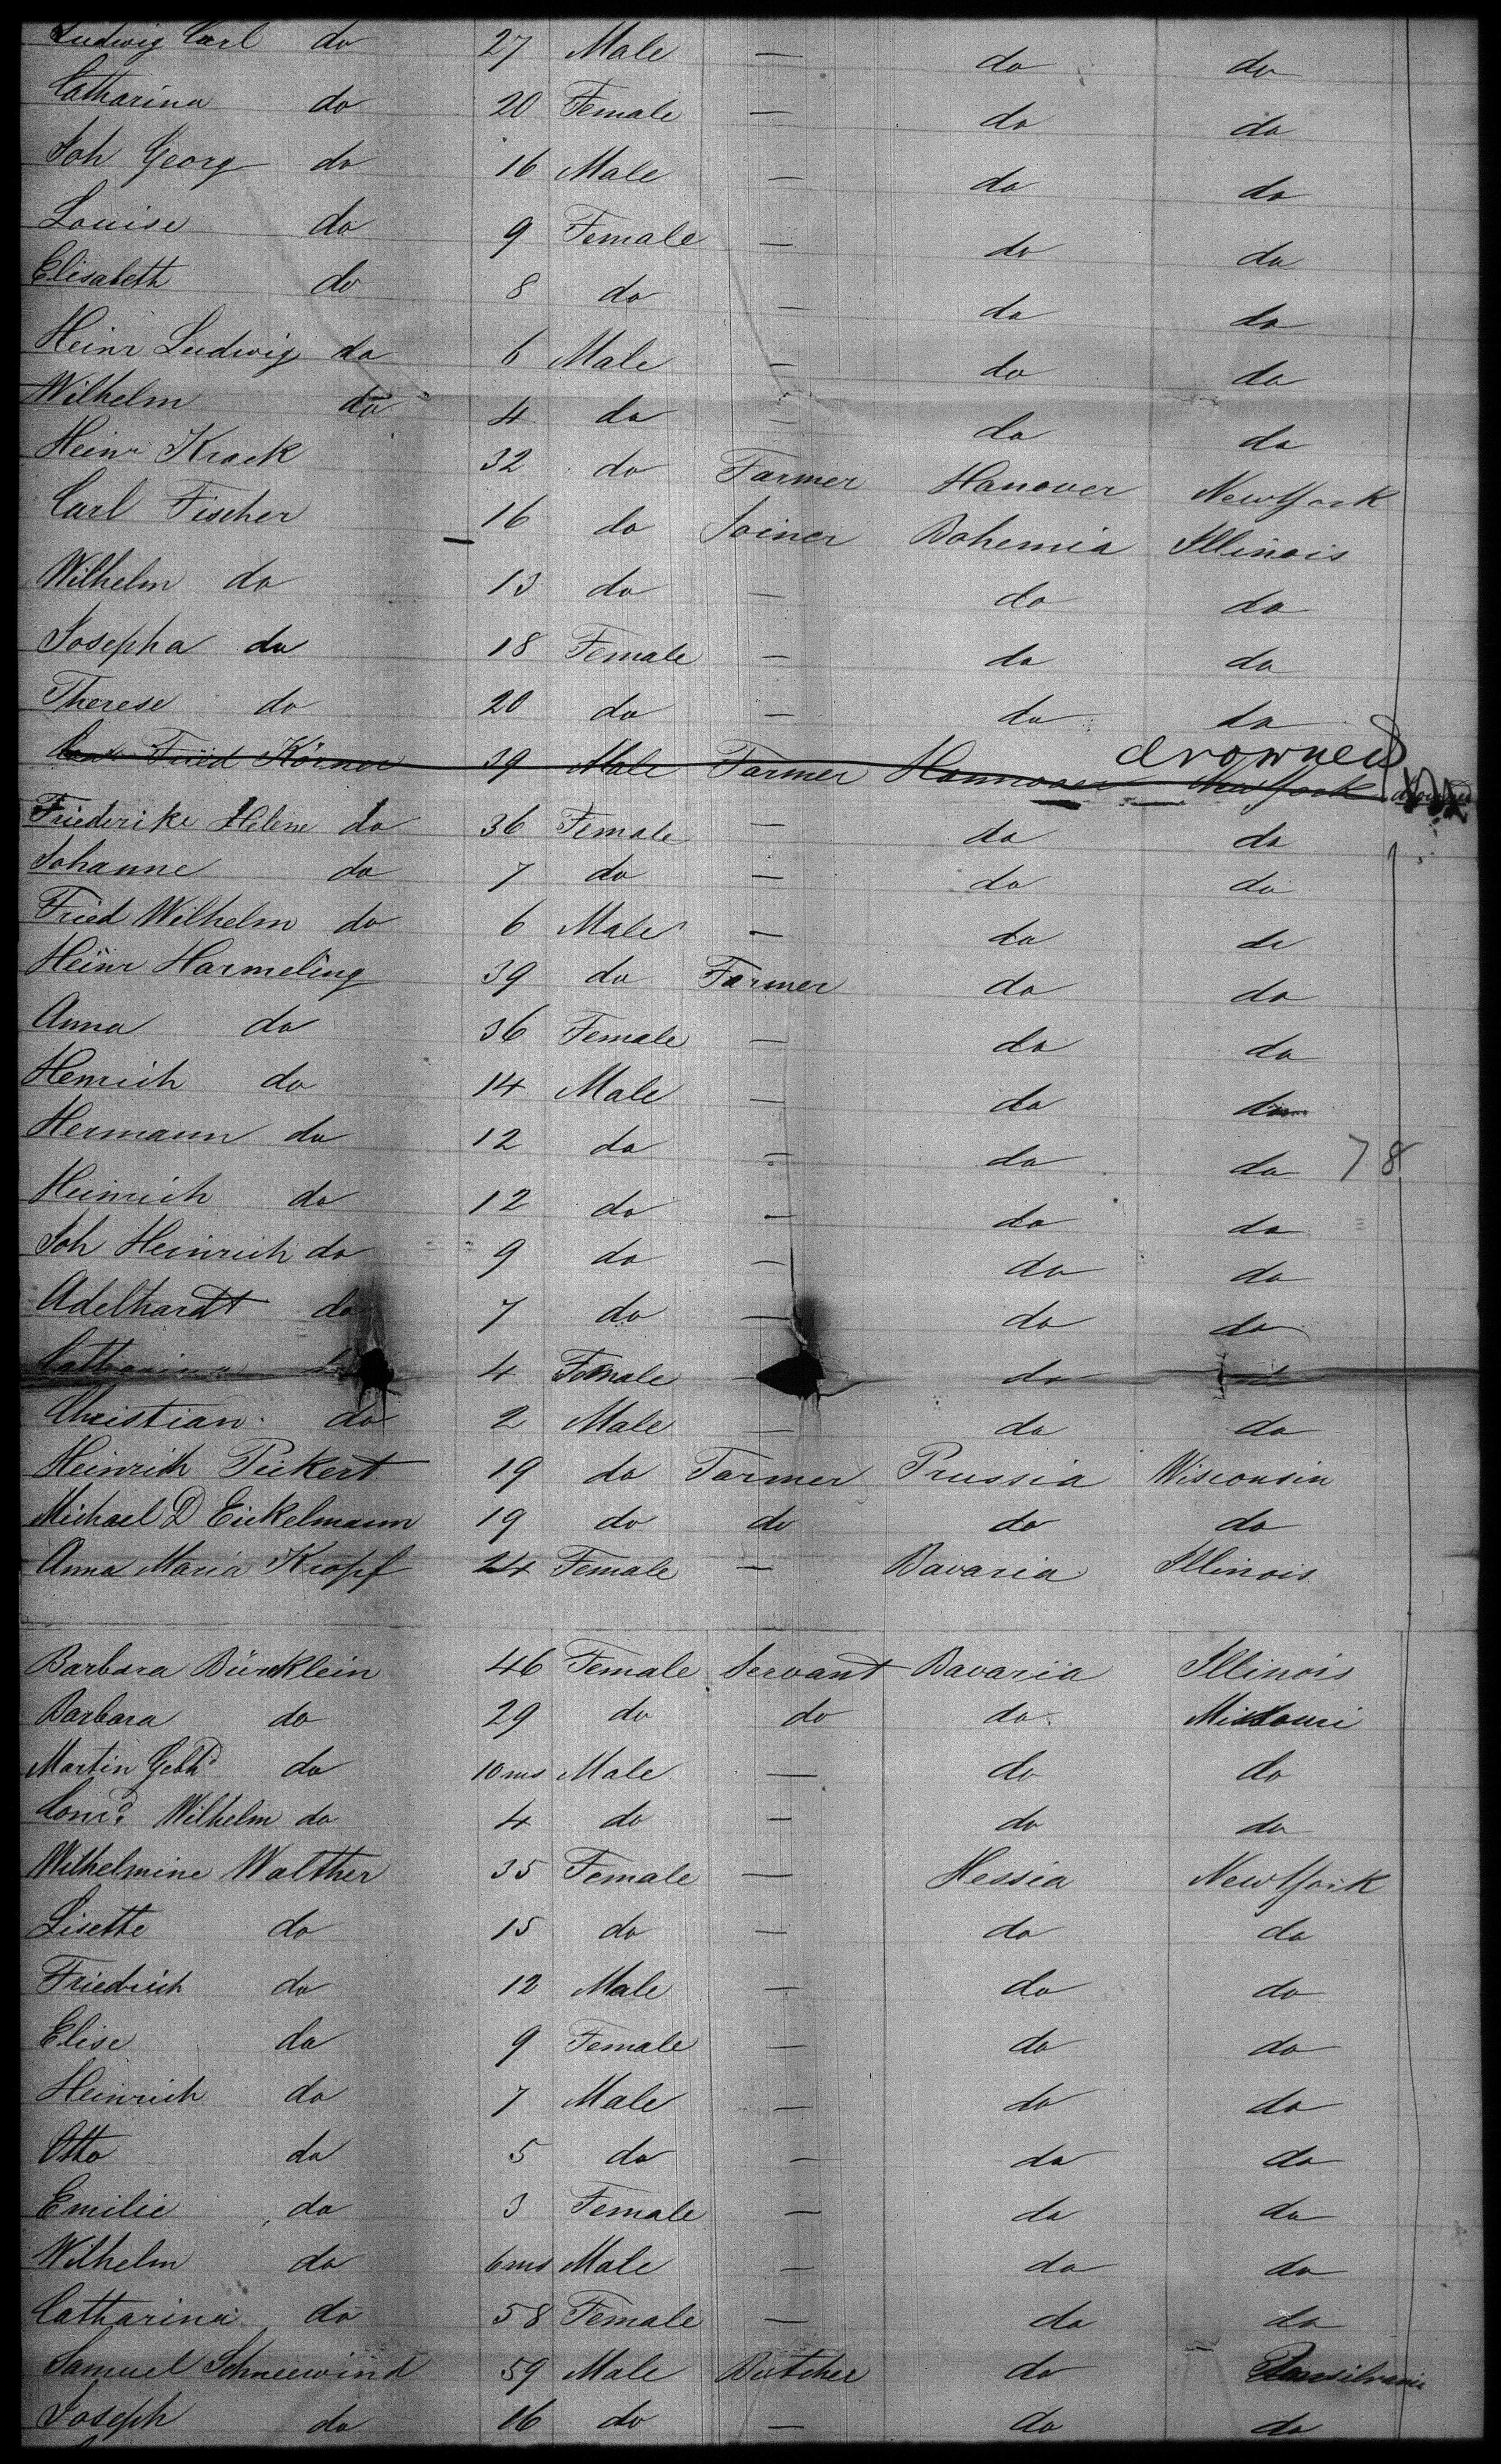 Ludwig Carl do 27 Male — do do
Catharina do 20 Female — do do
Joh Georg do 16 Male — do do
Louise do 9 Female — do do
Elisabeth do 8 do — do do
Heinr Ludwig do 6 Male — do do
Wilhelm do 4 do — do do
Heinr Krack 32 do Farmer Hanover NewYork
Carl Fischer 16 do Joiner Bohemia Illinois
Wilhelm do 13 do — do do
Josepha do 18 Female — do do
Therese do 20 do — do do
drowned
Fried Körner 39 Male Farmer Hannover New York drowned
Friederike Helene do 36 Female — do do
Johanne do 7 do — do do
Fried Wilhelm do 6 Male — do do
Heinr Harmeling 39 do Farmer do do
Anna do 36 Female — do do
Henrich do 14 Male — do do
Hermann do 12 do — do do 78
Heinrich do 12 do — do do
Joh Heinrich do 9 do — do do
Adelhardt do 7 do — do do
Catharina do 4 Female — do do
Christian do 2 Male — do do
Heinrich Pickert 19 do Farmer Prussia Wisconsin
Michael D Eickelmann 19 do do do do
Anna Maria Kropf 24 Female — Bavaria Illinois
Barbara Bürcklein 46 Female Servant Bavaria Illinois
Barbara do 29 do do do Missouri
Martin Gebhd do 10 ms Male — do do
Conrd Wilhelm do 4 do — do do
Wilhelmine Walther 35 Female — Hessia NewYork
Lisette do 15 do — do do
Friedrich do 12 Male — do do
Elise do 9 Female — do do
Heinrich do 7 Male — do do
Otto do 5 do — do do
Emilie do 3 Female — do do
Wilhelm do 6 ms Male — do do
Catharina do 58 Female — do do
Samuel Schneewind 59 Male Butcher do Pensilvania
Joseph do 16 do — do do